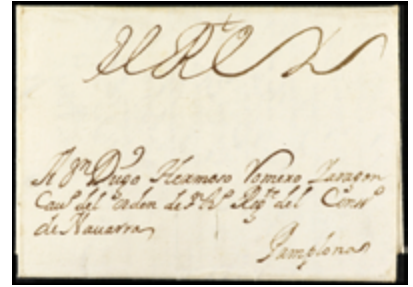 El Rey
A Dn Diego Hermoso Romero y Aragon
Cauo del orden de Sn Tiago Regte del Conso
de Nauarra
Pamplona